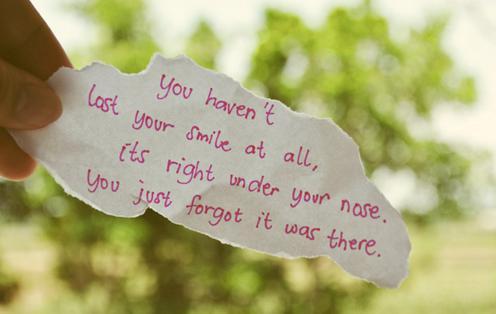 You haven't
lost your smile at all,
its right under your nose.
You just forgot it was there.